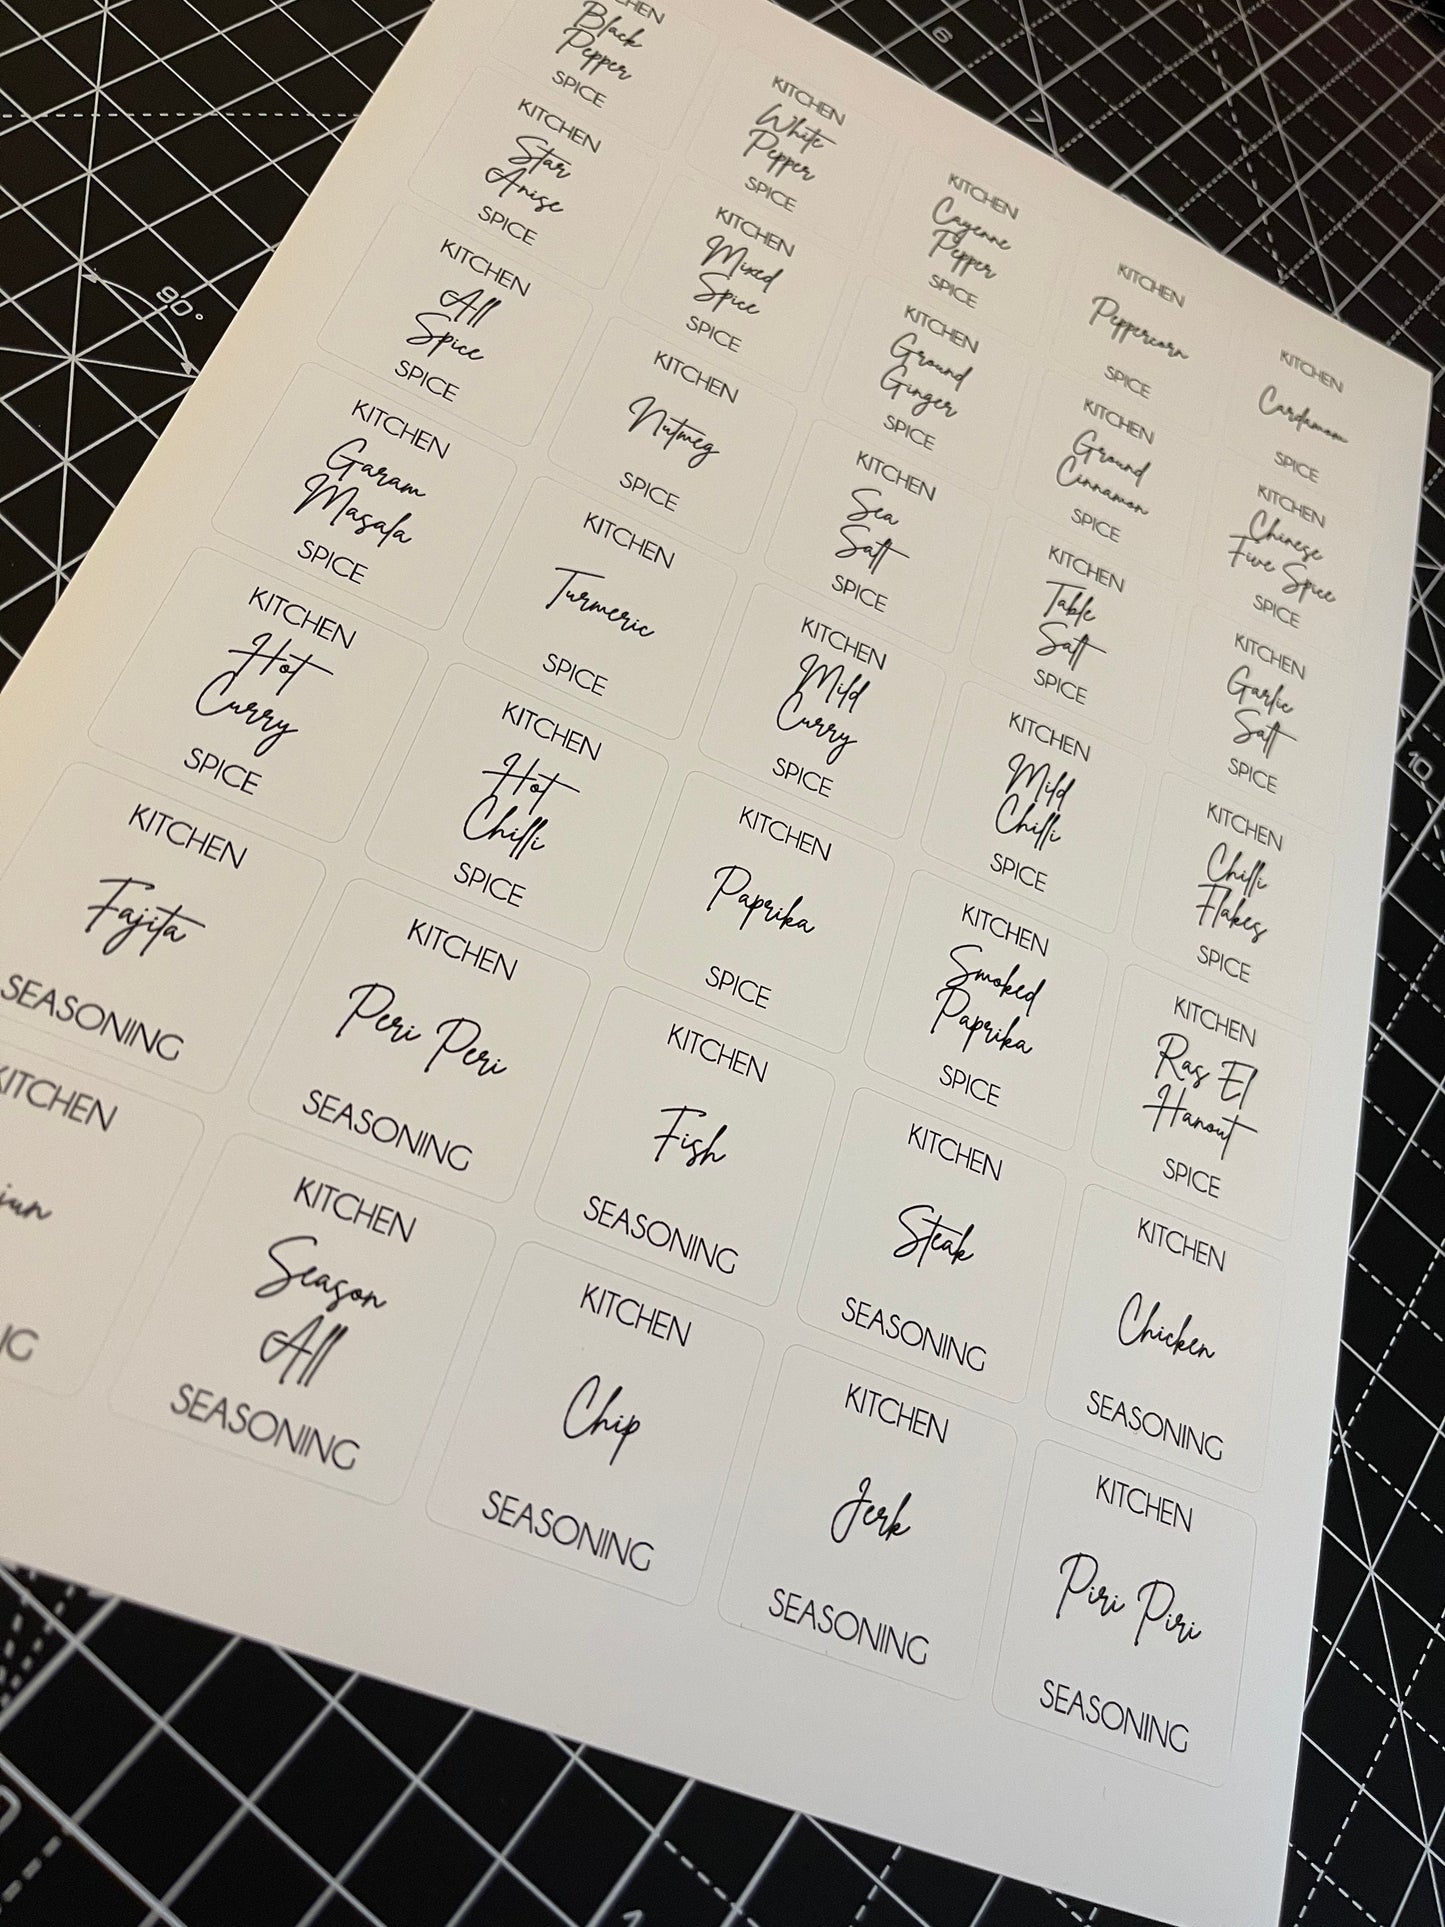 KITCHEN
Black
Pepper
SPICE
KITCHEN
White
Pepper
SPICE
KITCHEN
Cayenne
Pepper
SPICE
KITCHEN
Peppercorn
SPICE
KITCHEN
Cardamom
SPICE
KITCHEN
Star
Anise
SPICE
KITCHEN
Mixed
Spice
SPICE
KITCHEN
Ground
Ginger
SPICE
KITCHEN
Ground
Cinnamon
SPICE
KITCHEN
Chinese
Five Spice
SPICE
KITCHEN
All
Spice
SPICE
KITCHEN
Nutmeg
SPICE
KITCHEN
Sea
Salt
SPICE
KITCHEN
Table
Salt
SPICE
KITCHEN
Garlic
Salt
SPICE
KITCHEN
Garam
Masala
SPICE
KITCHEN
Turmeric
SPICE
KITCHEN
Mild
Curry
SPICE
KITCHEN
Mild
Chilli
SPICE
KITCHEN
Chilli
Flakes
SPICE
KITCHEN
Hot
Curry
SPICE
KITCHEN
Hot
Chilli
SPICE
KITCHEN
Paprika
SPICE
KITCHEN
Smoked
Paprika
SPICE
KITCHEN
Ras El
Hanout
SPICE
KITCHEN
Fajita
SEASONING
KITCHEN
Peri Peri
SEASONING
KITCHEN
Fish
SEASONING
KITCHEN
Steak
SEASONING
KITCHEN
Chicken
SEASONING
KITCHEN
KITCHEN
Season
All
SEASONING
KITCHEN
Chip
SEASONING
KITCHEN
Jerk
SEASONING
KITCHEN
Piri Piri
SEASONING
6
7
90°
10